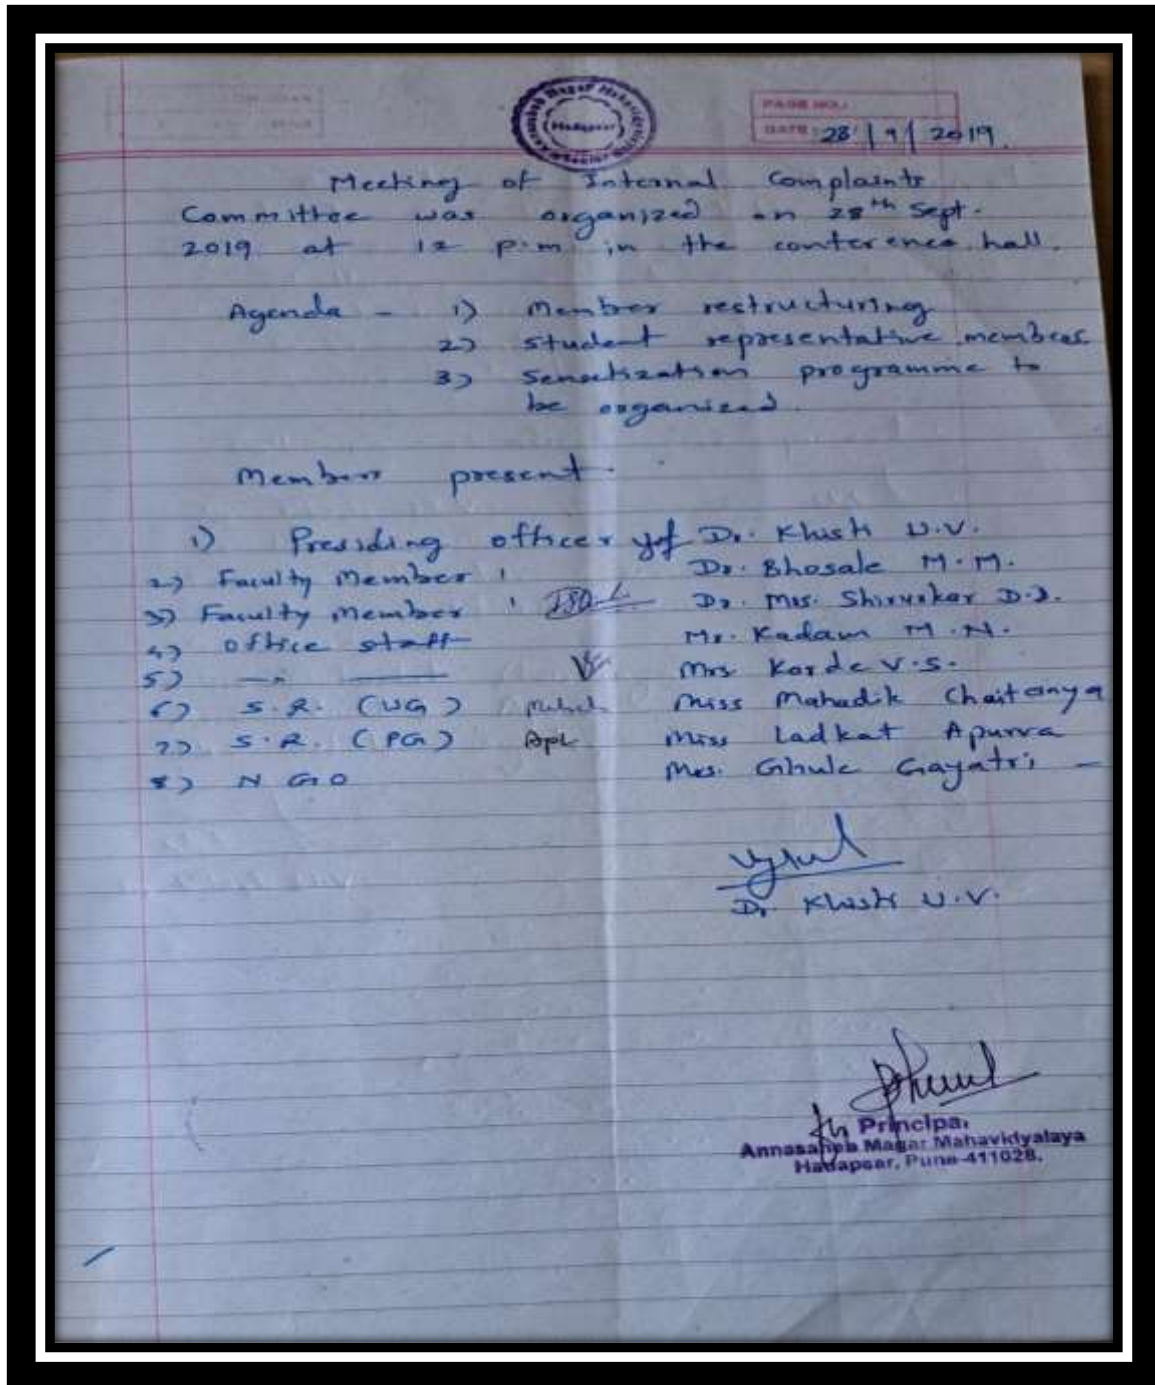 Annasaheb Magar Mahavidyalaya
Hadapsar
PAGE NO.:
DATE: 28/9/2019.
Meeting of Internal Complaints
Committee was organized on 28th Sept.
2019 at 12 p.m in the conference hall.
Agenda - 1) Member restructuring
2) Student representative members
3) Sensetization programme to
be organized.
Members present.
1) Presiding officer Dr. Khisti U.V.
2) Faculty Member : Dr. Bhosale M.M.
3) Faculty Member : Dr. Mrs. Shiruškar D.D.
4) office staff Mr. Kadam M.N.
5) —"— Mrs. Korde V.S.
6) S.R. (UG) Miss Mahadik Chaitanya
7) S.R. (PG) Apl Miss Ladkat Apurva
8) NGO Mrs. Ghule Gayatri -
Dr Khisti U.V.
for Principal
Annasaheb Magar Mahavidyalaya
Hadapsar, Pune-411028.